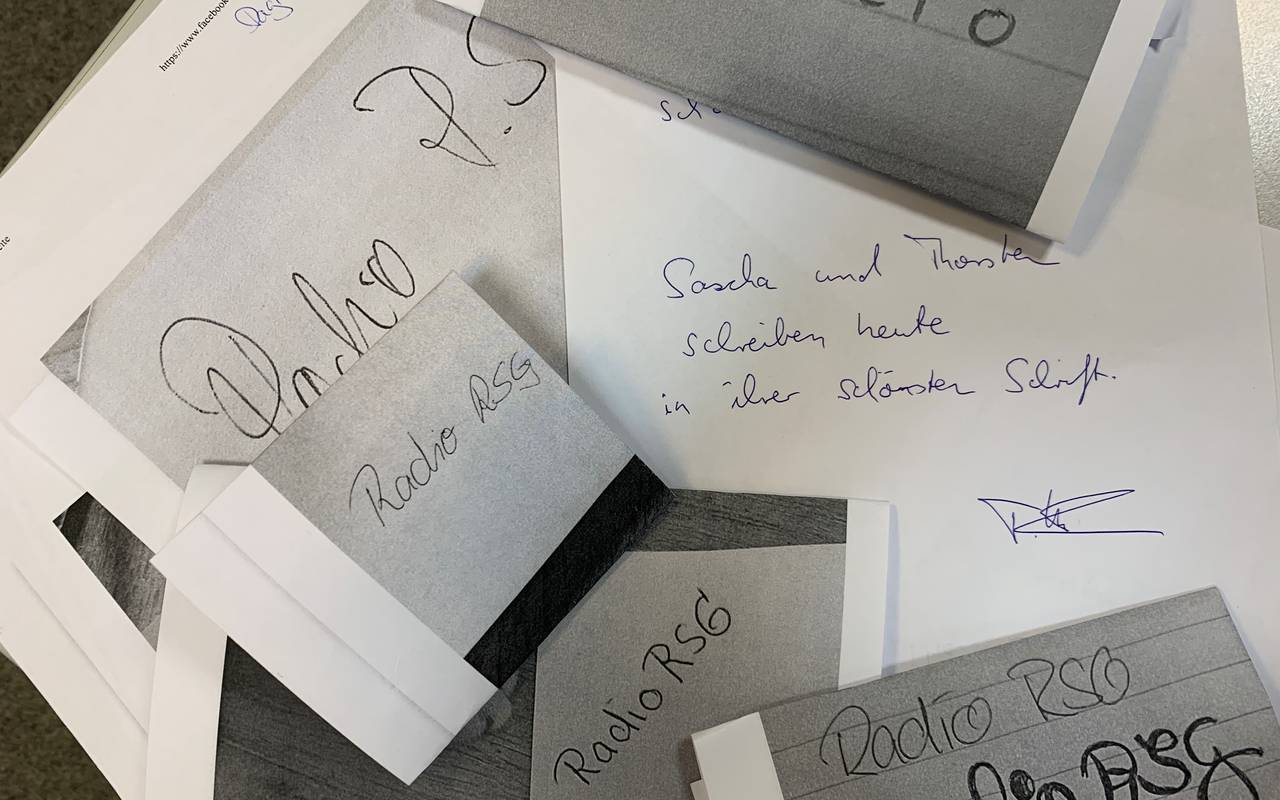 https://www.facebook
R.S
Radio
Sascha und Thorsten
schreiben heute
in ihrer schönsten Schrift.
Radio RSG
Radio RSG
Radio RSG
RSG